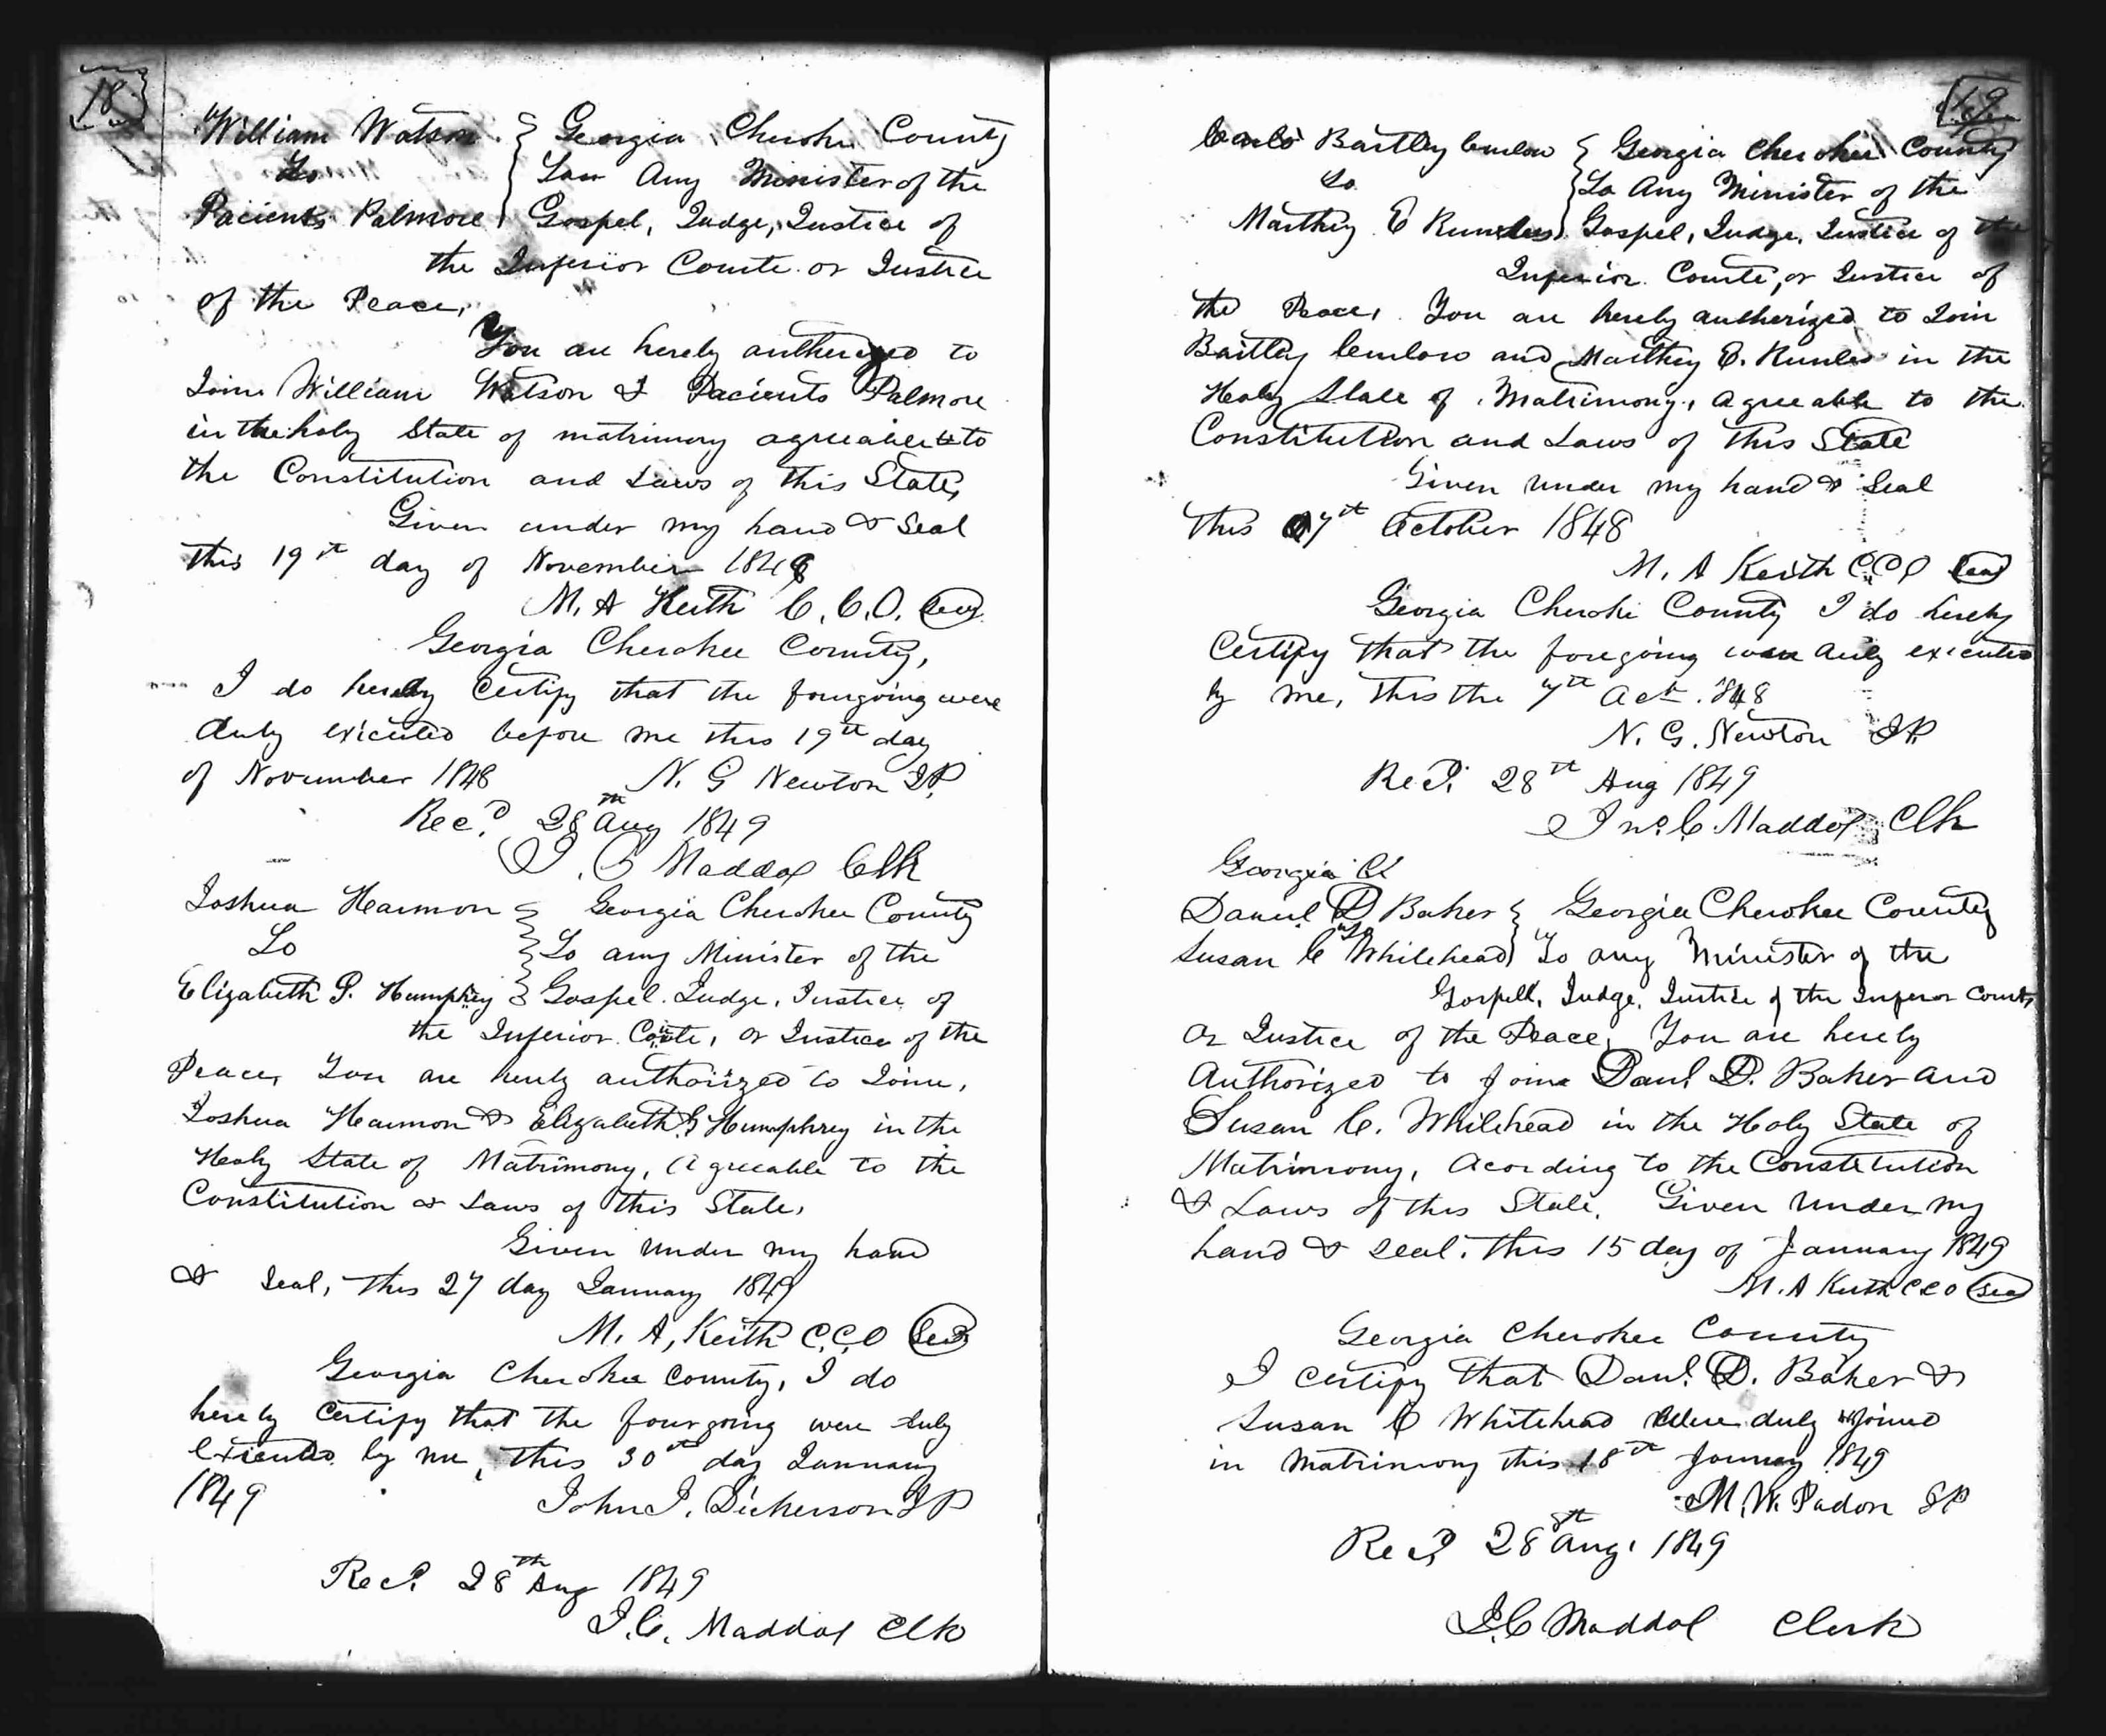 18
William Watson } Georgia, Cherokee County
To
Too Any Minister of the
Pacients Palmore } Gospel, Judge, Justice of
the Inferior Courte or Justice
of the Peace,
You are hereby autherized to
Joine William Watson & Pacients Palmore
in the holy State of matrimony agreeable to
the Constitution and Laws of this State,
Given under my hand & Seal
this 19th day of November 1848
M. A Keith C. C. O. Seal
Georgia Cherokee County,
I do hereby Certify that the foregoing were
duly executed before me this 19th day
of November 1848 N. G Newton J.P.
Recd. 28th Aug 1849
J. C Maddox Clk
Joshua Harmon } Georgia Cherokee County
To } To any Minister of the
Elizabeth P. Humphrey } Gospel. Judge, Justice of
the Inferior Courte, or Justice of the
Peace, You are hereby authorized to Joine,
Joshua Harmon & Elizabeth Humphrey in the
Holy State of Matrimony, Agreeable to the
Constitution & Laws of this State,
Given under my hand
& Seal, this 27 day January 1849
M. A, Keith C.C.O Seal
Georgia Cherokee County, I do
hereby Certify that the fourgoing were duly
Executed by me, this 30th day January
1849 John J. Dickerson J P
Recd. 28th Aug 1849
J. C. Maddox Clk
19
Bartley } Georgia Cherokee County
To } To Any Minister of the
Marthey E } Gospel, Judge, Justice of the
Inferior Courte, or Justice of
the Peace, You are hereby autherized to Join
Bartley and Marthey E. in the
Holy State of Matrimony, Agreeable to the
Constitution and Laws of this State
Given under my hand & Seal
this 7th October 1848
M. A Keith C.C.O Seal
Georgia Cheroke County I do hereby
Certify that the foregoing were duly executed
by me, this the 7th Oct. 1848
N. G. Newton J.P.
Recd. 28th Aug 1849
Jno. C Maddox Clk
Georgia C
Daniel D Baker } Georgia Cherokee County
to
Susan C Whitehead } To any Minister of the
Gospell, Judge, Justice of the Inferor Courts
Or Justice of the Peace, You are hereby
Authorized to Joine Danl. D. Baker and
Susan C. Whitehead in the Holy State of
Matrimony, Acording to the Constitution
& Laws of this State. Given Under my
hand & seal, this 15 day of January 1849
M. A Keith CCO Seal
Georgia Cherokee County
I certify that Danl. D. Baker &
Susan C Whitehead Were duly Joined
in Matrimony this 18th January 1849
M. W. Padon J P
Recd 28th Aug. 1849
J. C Maddox Clerk